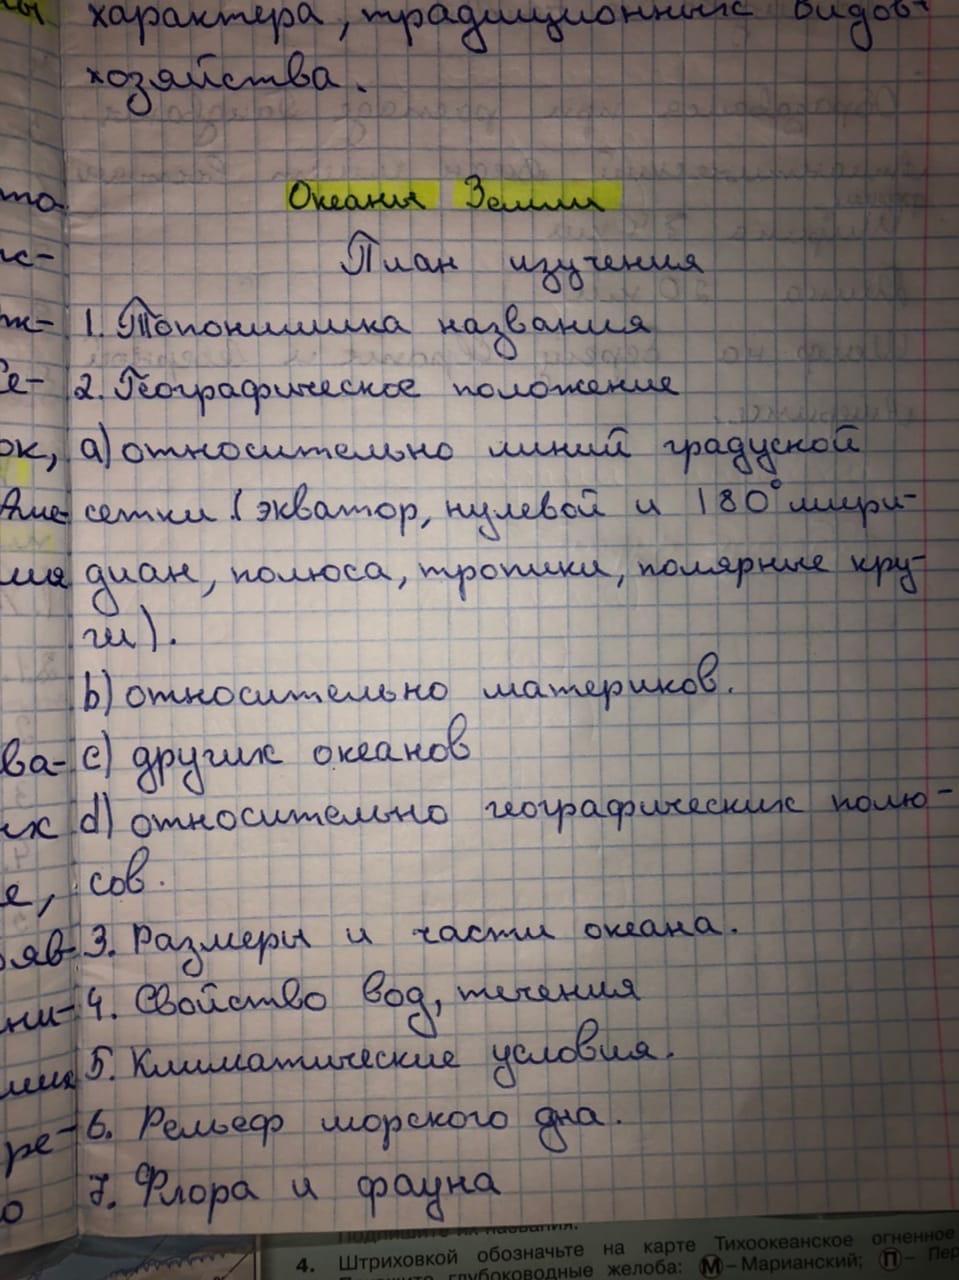 характера, традиционных видов
хозяйства.
Океаны Земли
План изучения
1. Топонимика названия
2. Географическое положение
а) относительно линий градусной
сетки (экватор, нулевой и 180° мери-
диан, полюса, тропики, полярные кру-
ги).
b) относительно материков.
c) других океанов
d) относительно географических полю-
сов.
3. Размеры и части океана.
4. Свойство вод, течения
5. Климатические условия.
6. Рельеф морского дна.
7. Флора и фауна
Подпишите их названия.
4. Штриховкой обозначьте на карте Тихоокеанское огненное
глубоководные желоба: М – Марианский; П – Пер